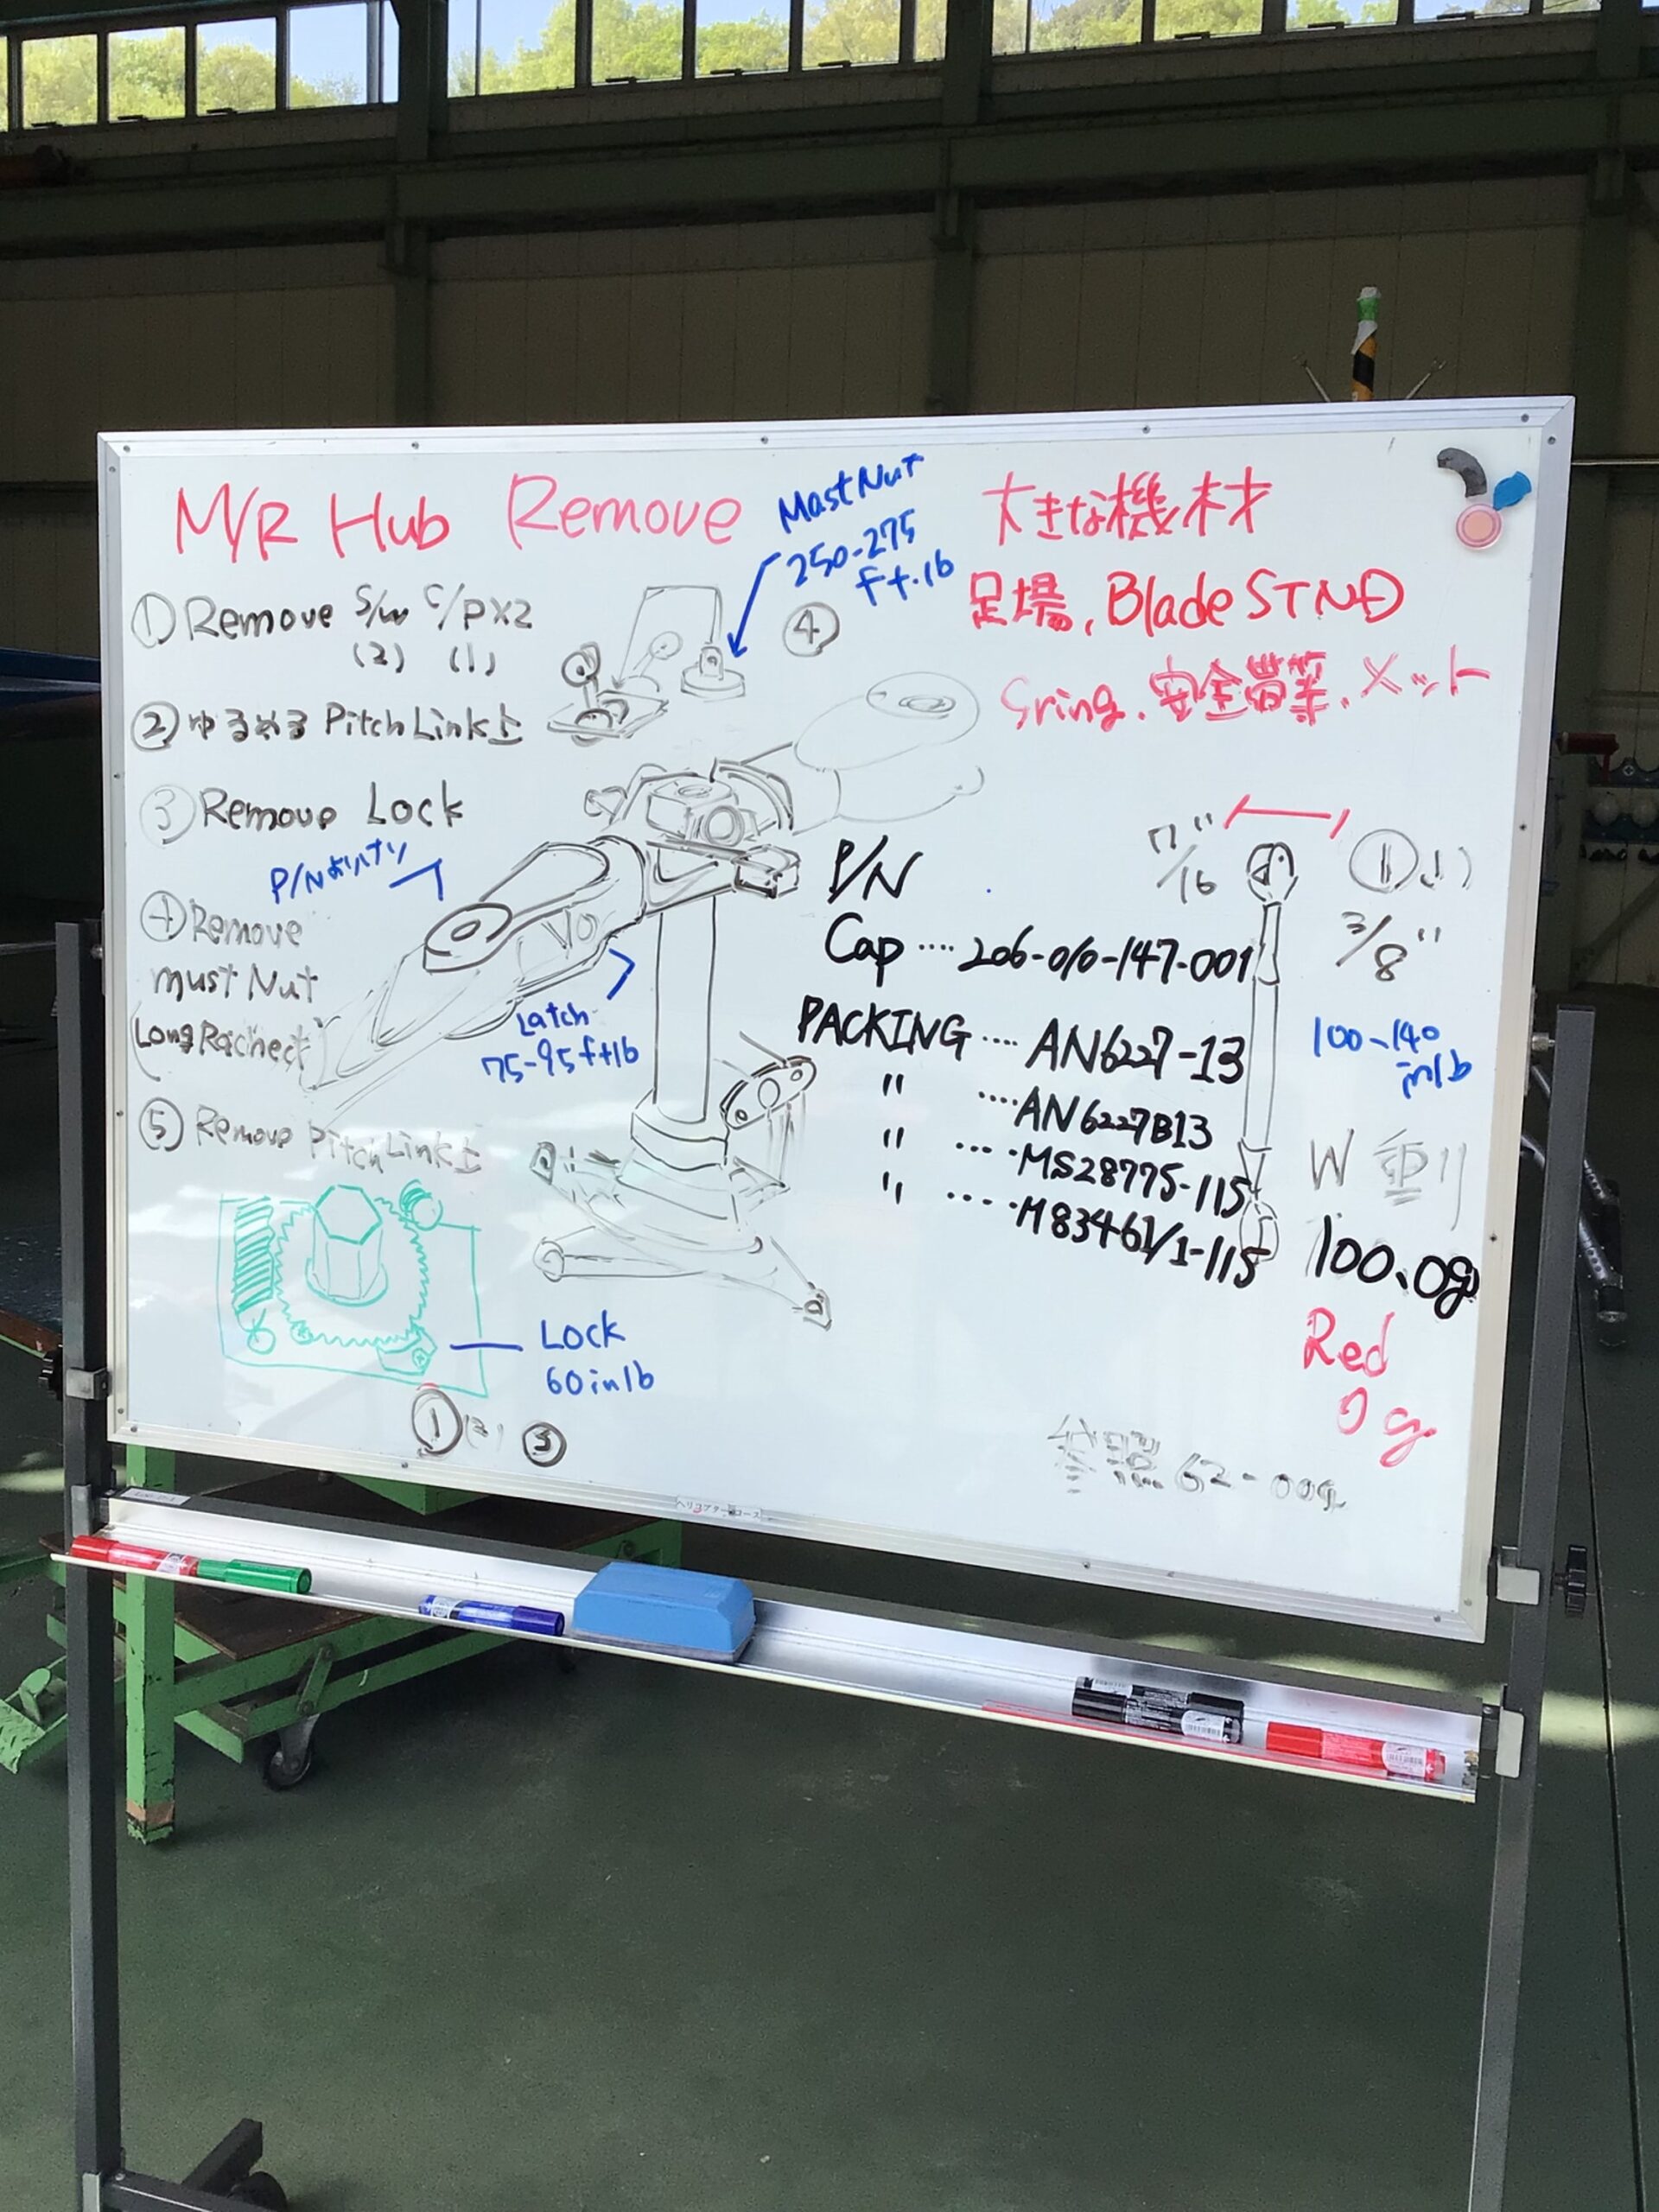 M/R Hub Remove
① Remove S/W C/P×2
(2) (1)
② ゆるめる Pitch Link上
③ Remove Lock
P/N
④ Remove
must Nut
Long Rachect
⑤ Remove Pitch Link上
Mast Nut
250-275
ft.lb
④
Latch
75-95 ft lb
Lock
60 in lb
① (2) ③
大きな機材
足場, Blade STND
Sring, 安全帯等, メット
P/N
Cap .... 206-010-147-001
PACKING .... AN6227-13
" .... AN6227B13
" .... MS28775-115
" .... M83461/1-115
7/16"
①
3/8"
100-140
in lb
W 重り
100.0g
Red
0g
62-00g
ヘリコプターコース